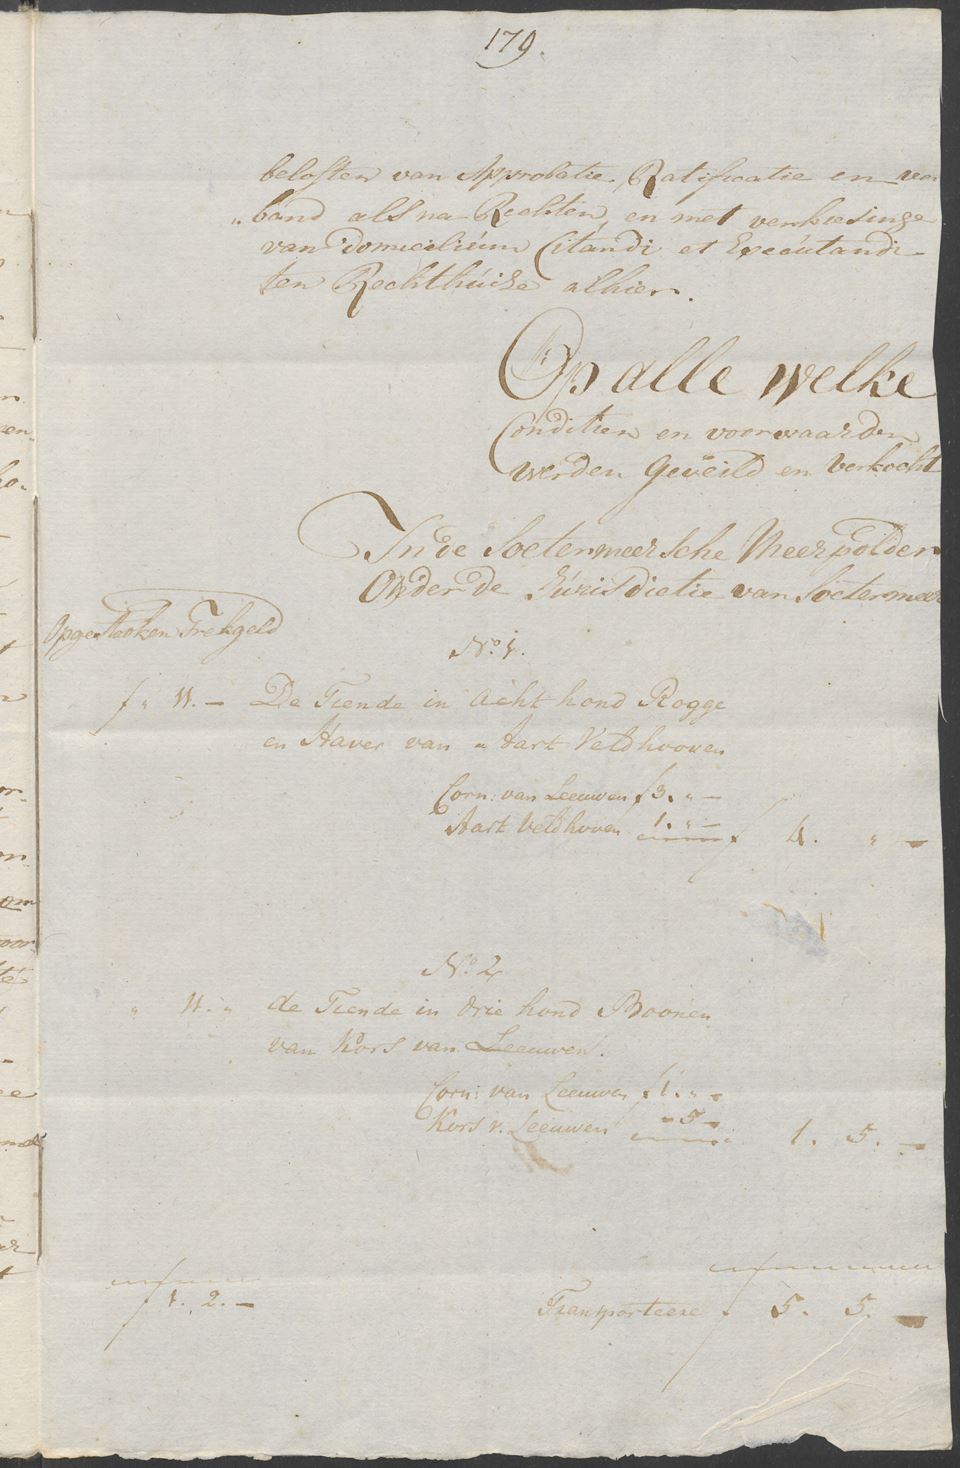 179.
beloften van Approbatie, Ratificatie en ver
„band als na Rechten, en met verkiesinge
van domicilium Citandi et Executandi
ten Rechthuise alhier.
Op alle welke
Conditien en voorwaarden
werden Geveild en verkocht
In de Soetermeersche Meerpolder
Onder de Jurisdictie van Soetermeer
Opgestoken Trekgeld
No. 1.
f „ 11. — De Tiende in Acht hond Rogge
en Haver van Aart Veldhoven
Corn: van Leeuwen f 3. „ —
Aart Veldhoven 1. „ — f 4. „ —
No. 2
„ 11. „ de Tiende in drie hond Boonen
van Kors van Leeuwen.
Corn: van Leeuwen f 1. „ —
Kors v. Leeuwen - 5 - 1. 5. —
f 1. 2. — Transporteere f 5. 5. —